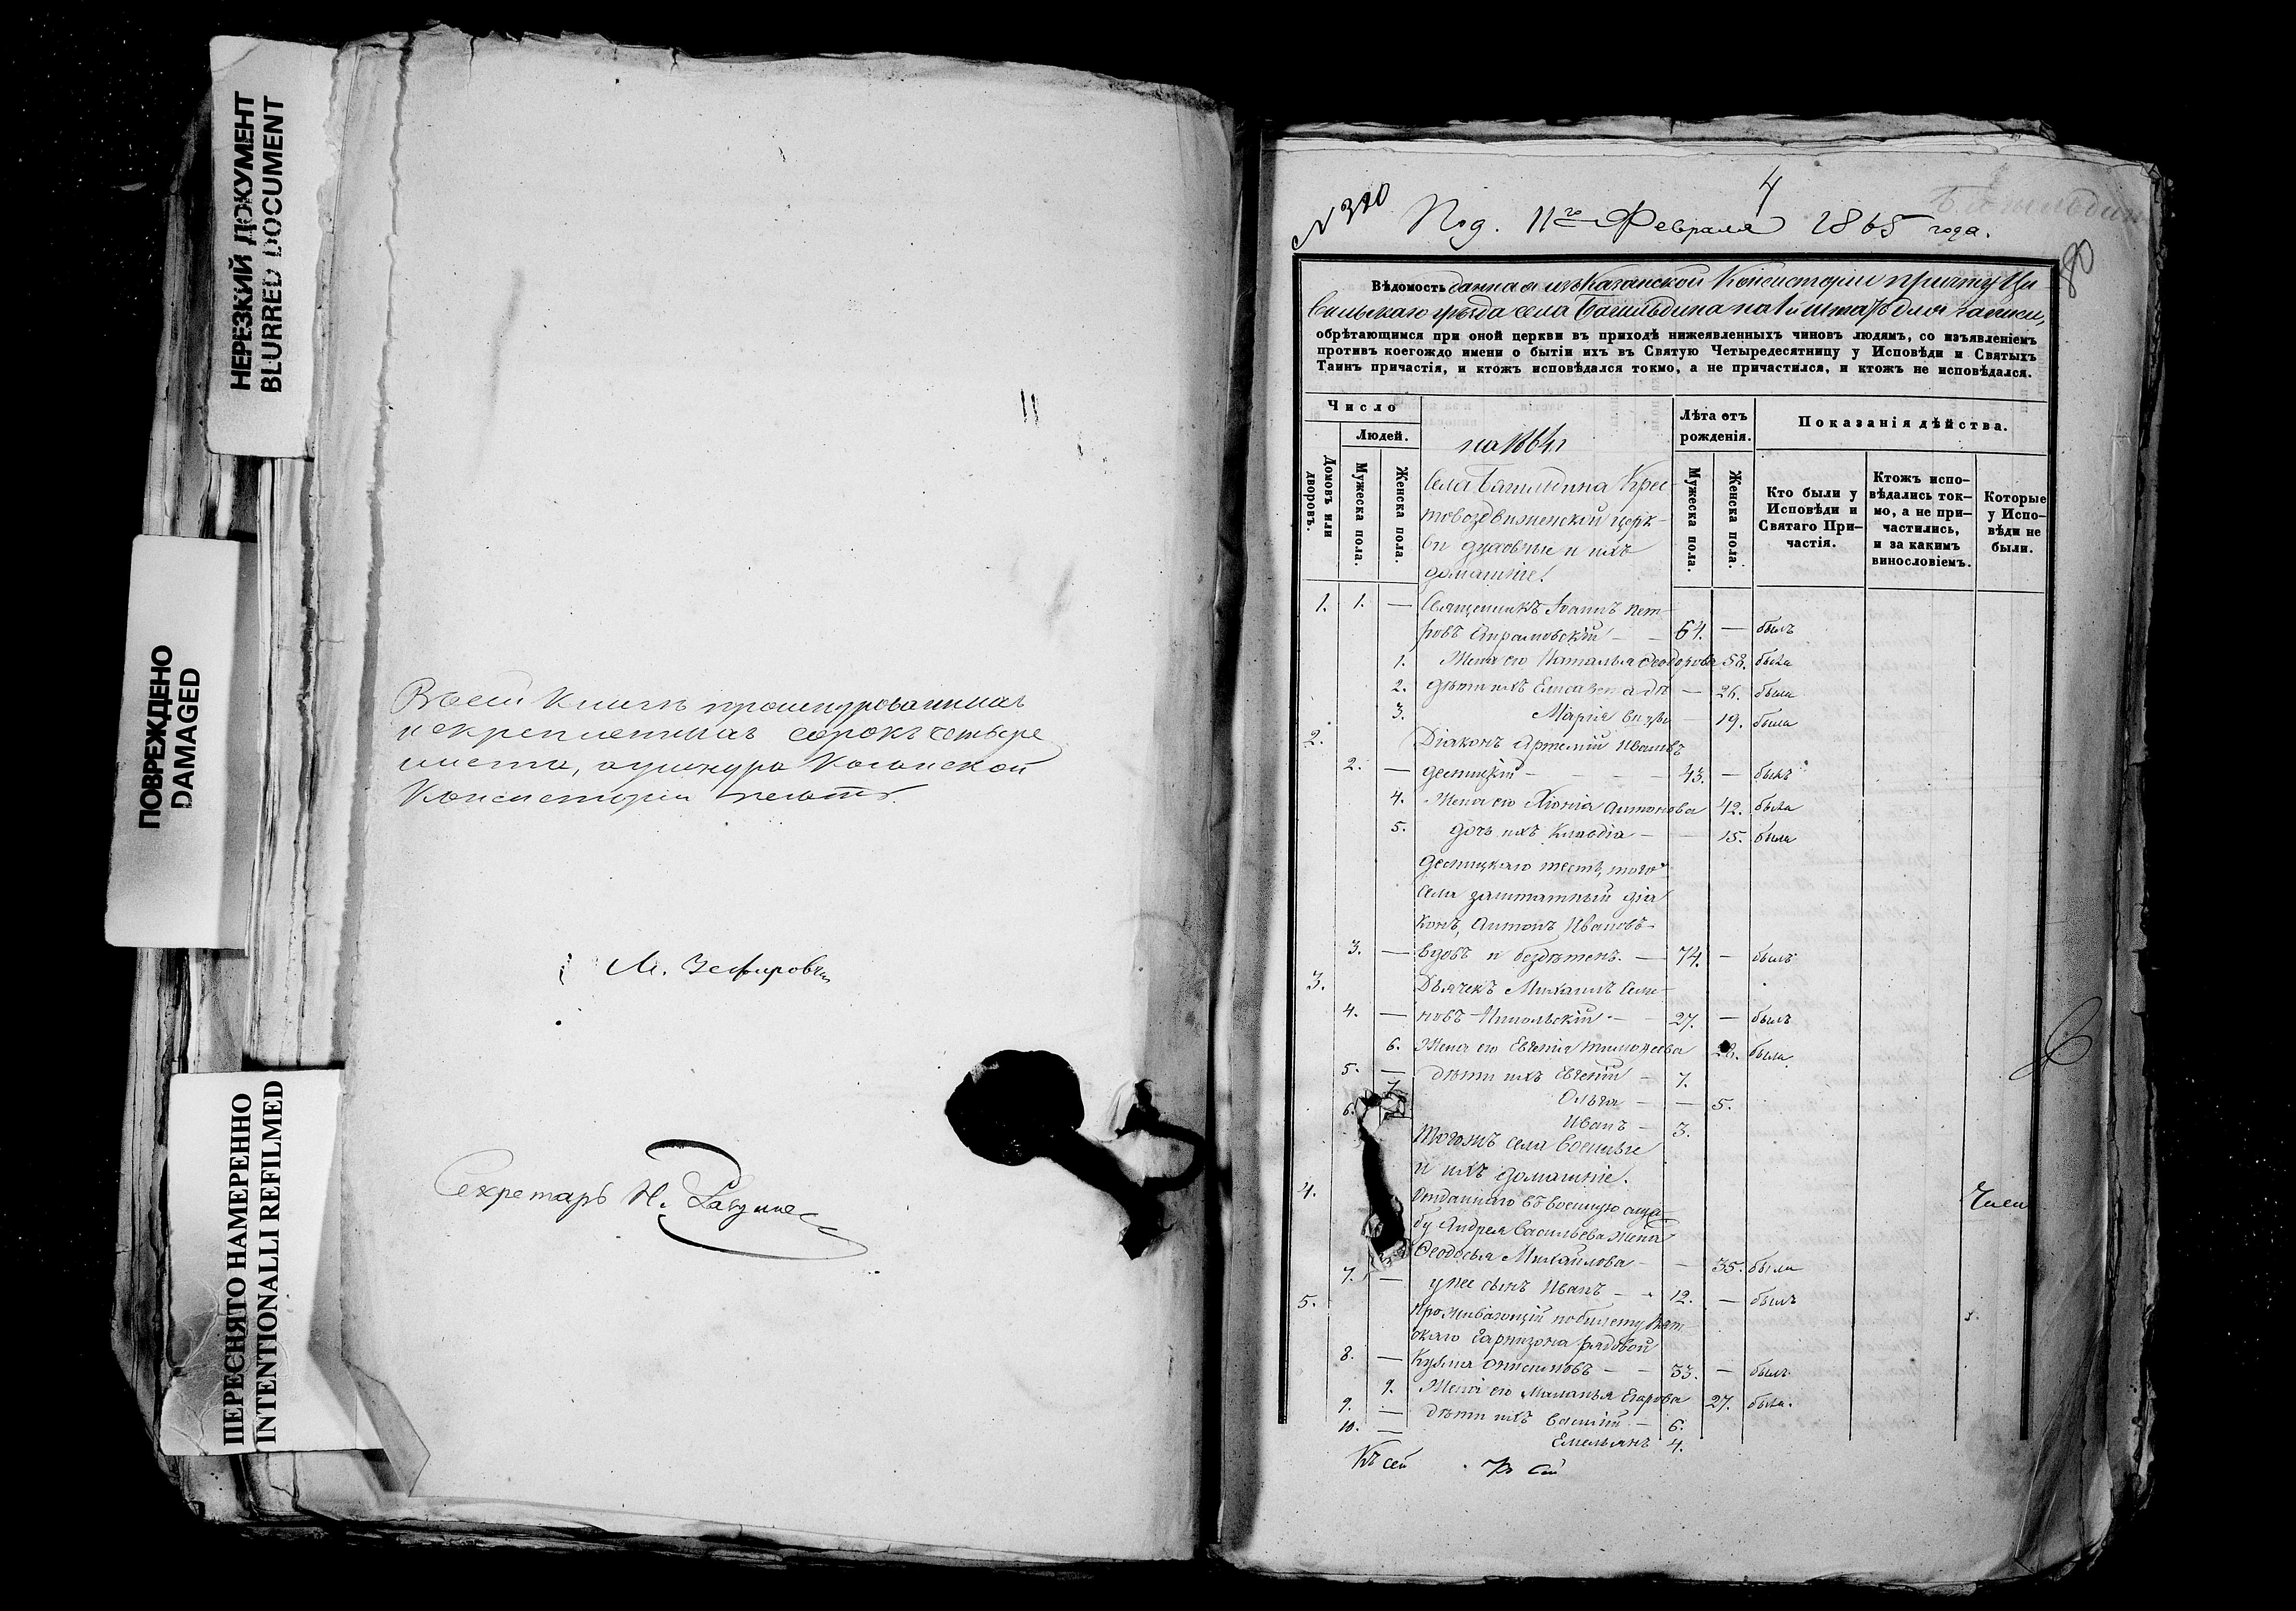 НЕРЕЗКИЙ ДОКУМЕНТ
BLURRED DOCUMENT
ПОВРЕЖДЕНО
DAMAGED
ПЕРЕСНЯТО НАМЕРЕННО
INTENTIONALLI REFILMED
Въ сей книгѣ прошнурованныхъ
и скрепленныхъ сорокъ четыре
листа, а у шнура Казанской
Консисторіи печать.
М. Зефировъ
Секретарь Н.
4
№ 310
Под. 11го Февраля 1865 года.
80
Вѣдомость данная изъ Казанской Консисторіи причту Ци-
вильскаго уѣзда села Багильдина на 1й штатъ для записи,
обрѣтающимся при оной церкви въ приходѣ нижеявленныхъ чиновъ людямъ, со изъявленіемъ
противъ коегождо имени о бытіи ихъ въ Святую Четыредесятницу у Исповѣди и Святыхъ
Таинъ причастія, и ктожъ исповѣдался токмо, а не причастился, и ктожъ не исповѣдался.
Число
Людей.
Домовъ или дворовъ.
Мужеска пола.
Женска пола.
Лѣта отъ рожденія.
Мужеска пола.
Женска пола.
Показанія дѣйства.
Кто были у Исповѣди и Святаго При-частія.
Ктожъ испо-вѣдались ток-мо, а не при-частились, и за какимъ винословіемъ.
Которые у Испо-вѣди не были.
на 1864 г.
Села Багильдина Крес-
товоздвиженской церк-
ви духовные и ихъ
домашніе.
1. 1. — Священникъ Іоаннъ Пет-
ровъ — 64. — былъ
1. Жена его Наталья Ѳеодорова 58. была
2. Дѣти ихъ Елисавета дѣ — 26. была
3. Марія — 19. была
2. Діаконъ Артемій Ивановъ
2. — Десницкій — 43. — былъ
4. Жена его Хіонія Антонова 42. была
5. Дочь ихъ Клавдія — 15. была
Десницкаго тесть, того
села заштатный діа
конъ, Антонъ Ивановъ
3. — вдовъ и бездѣтенъ. — 74. — былъ
3. Дьячекъ Михаилъ Семе-
4. — новъ Никольскій — 27. — былъ
6. Жена его Евгенія Тимоѳеева 28. была
5. — Дѣти ихъ Евгеній — 7.
7. Ольга — — 5.
6. Иванъ — 3.
Тогожъ села военные
и ихъ домашніе.
4. Отданнаго въ военную служ
бу Андрея Васильева жена
Ѳеодосья Михайлова — — 35. была
7. — у нее сынъ Иванъ — 12. — былъ
5. Проживающій по билету Вят
скаго Гарнизона рядовой
8. — Кузьма Онисимовъ — 33. — былъ
9. Жена его Маланья Егорова 27. была.
9. — Дѣти ихъ Василій — 6.
10. — Емельянъ 4.
Къ сей
Къ сей